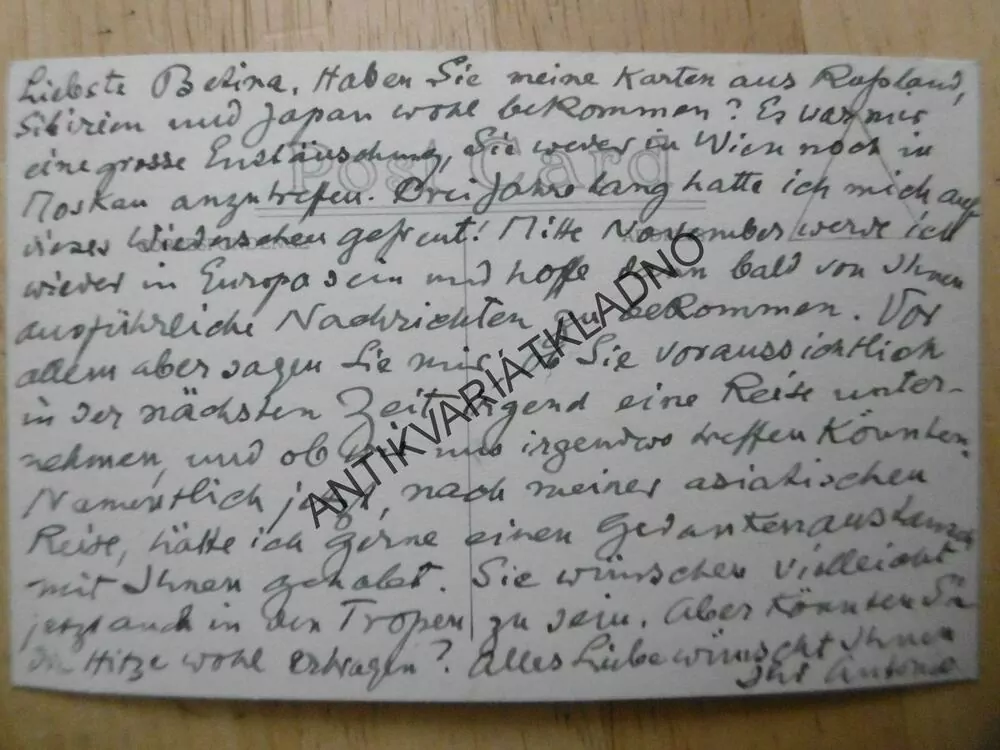 Liebste Betina. Haben Sie meine Karten aus Rußland,
Sibirien und Japan wohl bekommen? Es war mir
eine grosse Enttäuschung, Sie weder in Wien noch in
Moskau anzutreffen. Drei Jahre lang hatte ich mich auf
dieses Wiedersehen gefreut! Mitte November werde ich
wieder in Europa sein und hoffe dann bald von Ihnen
ausführliche Nachrichten zu bekommen. Vor
allem aber sagen Sie mir, ob Sie voraussichtlich
in der nächsten Zeit irgend eine Reise unter-
nehmen, und ob wir uns irgendwo treffen könnten.
Namentlich jetzt, nach meiner asiatischen
Reise, hätte ich gerne einen Gedankenaustausch
mit Ihnen gehabt. Sie wünschen vielleicht
jetzt auch in den Tropen zu sein. Aber könnten Sie
die Hitze wohl ertragen? Alles Liebe wünscht Ihnen
Ihr
Post Card
ANTIKVARIÁTKLADNO